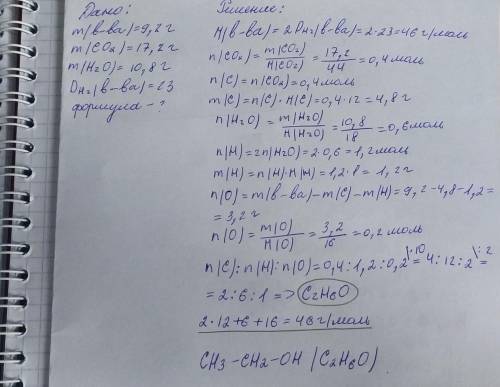 Дано:
m(в-ва)=9,2г
m(CO2)=17,2г
m(H2O)=10,8г
DH2(в-ва)=23
формула-?
Решение:
M(в-ва)=2DH2(в-ва)=2·23=46г/моль
n(CO2)=m(CO2)/M(CO2)=17,2/44=0,4моль
n(C)=n(CO2)=0,4моль
m(C)=n(C)·M(C)=0,4·12=4,8г
n(H2O)=m(H2O)/M(H2O)=10,8/18=0,6моль
n(H)=2n(H2O)=2·0,6=1,2моль
m(H)=n(H)·M(H)=1,2·1=1,2г
n(O)=m(в-ва)-m(C)-m(H)=9,2-4,8-1,2=
=3,2г
n(O)=m(O)/M(O)=3,2/16=0,2моль
n(C):n(H):n(O)=0,4:1,2:0,2 \·10 =4:12:2 \:2 =
=2:6:1=>C2H6O
2·12+6+16=46г/моль
CH3-CH2-OH (C2H6O)